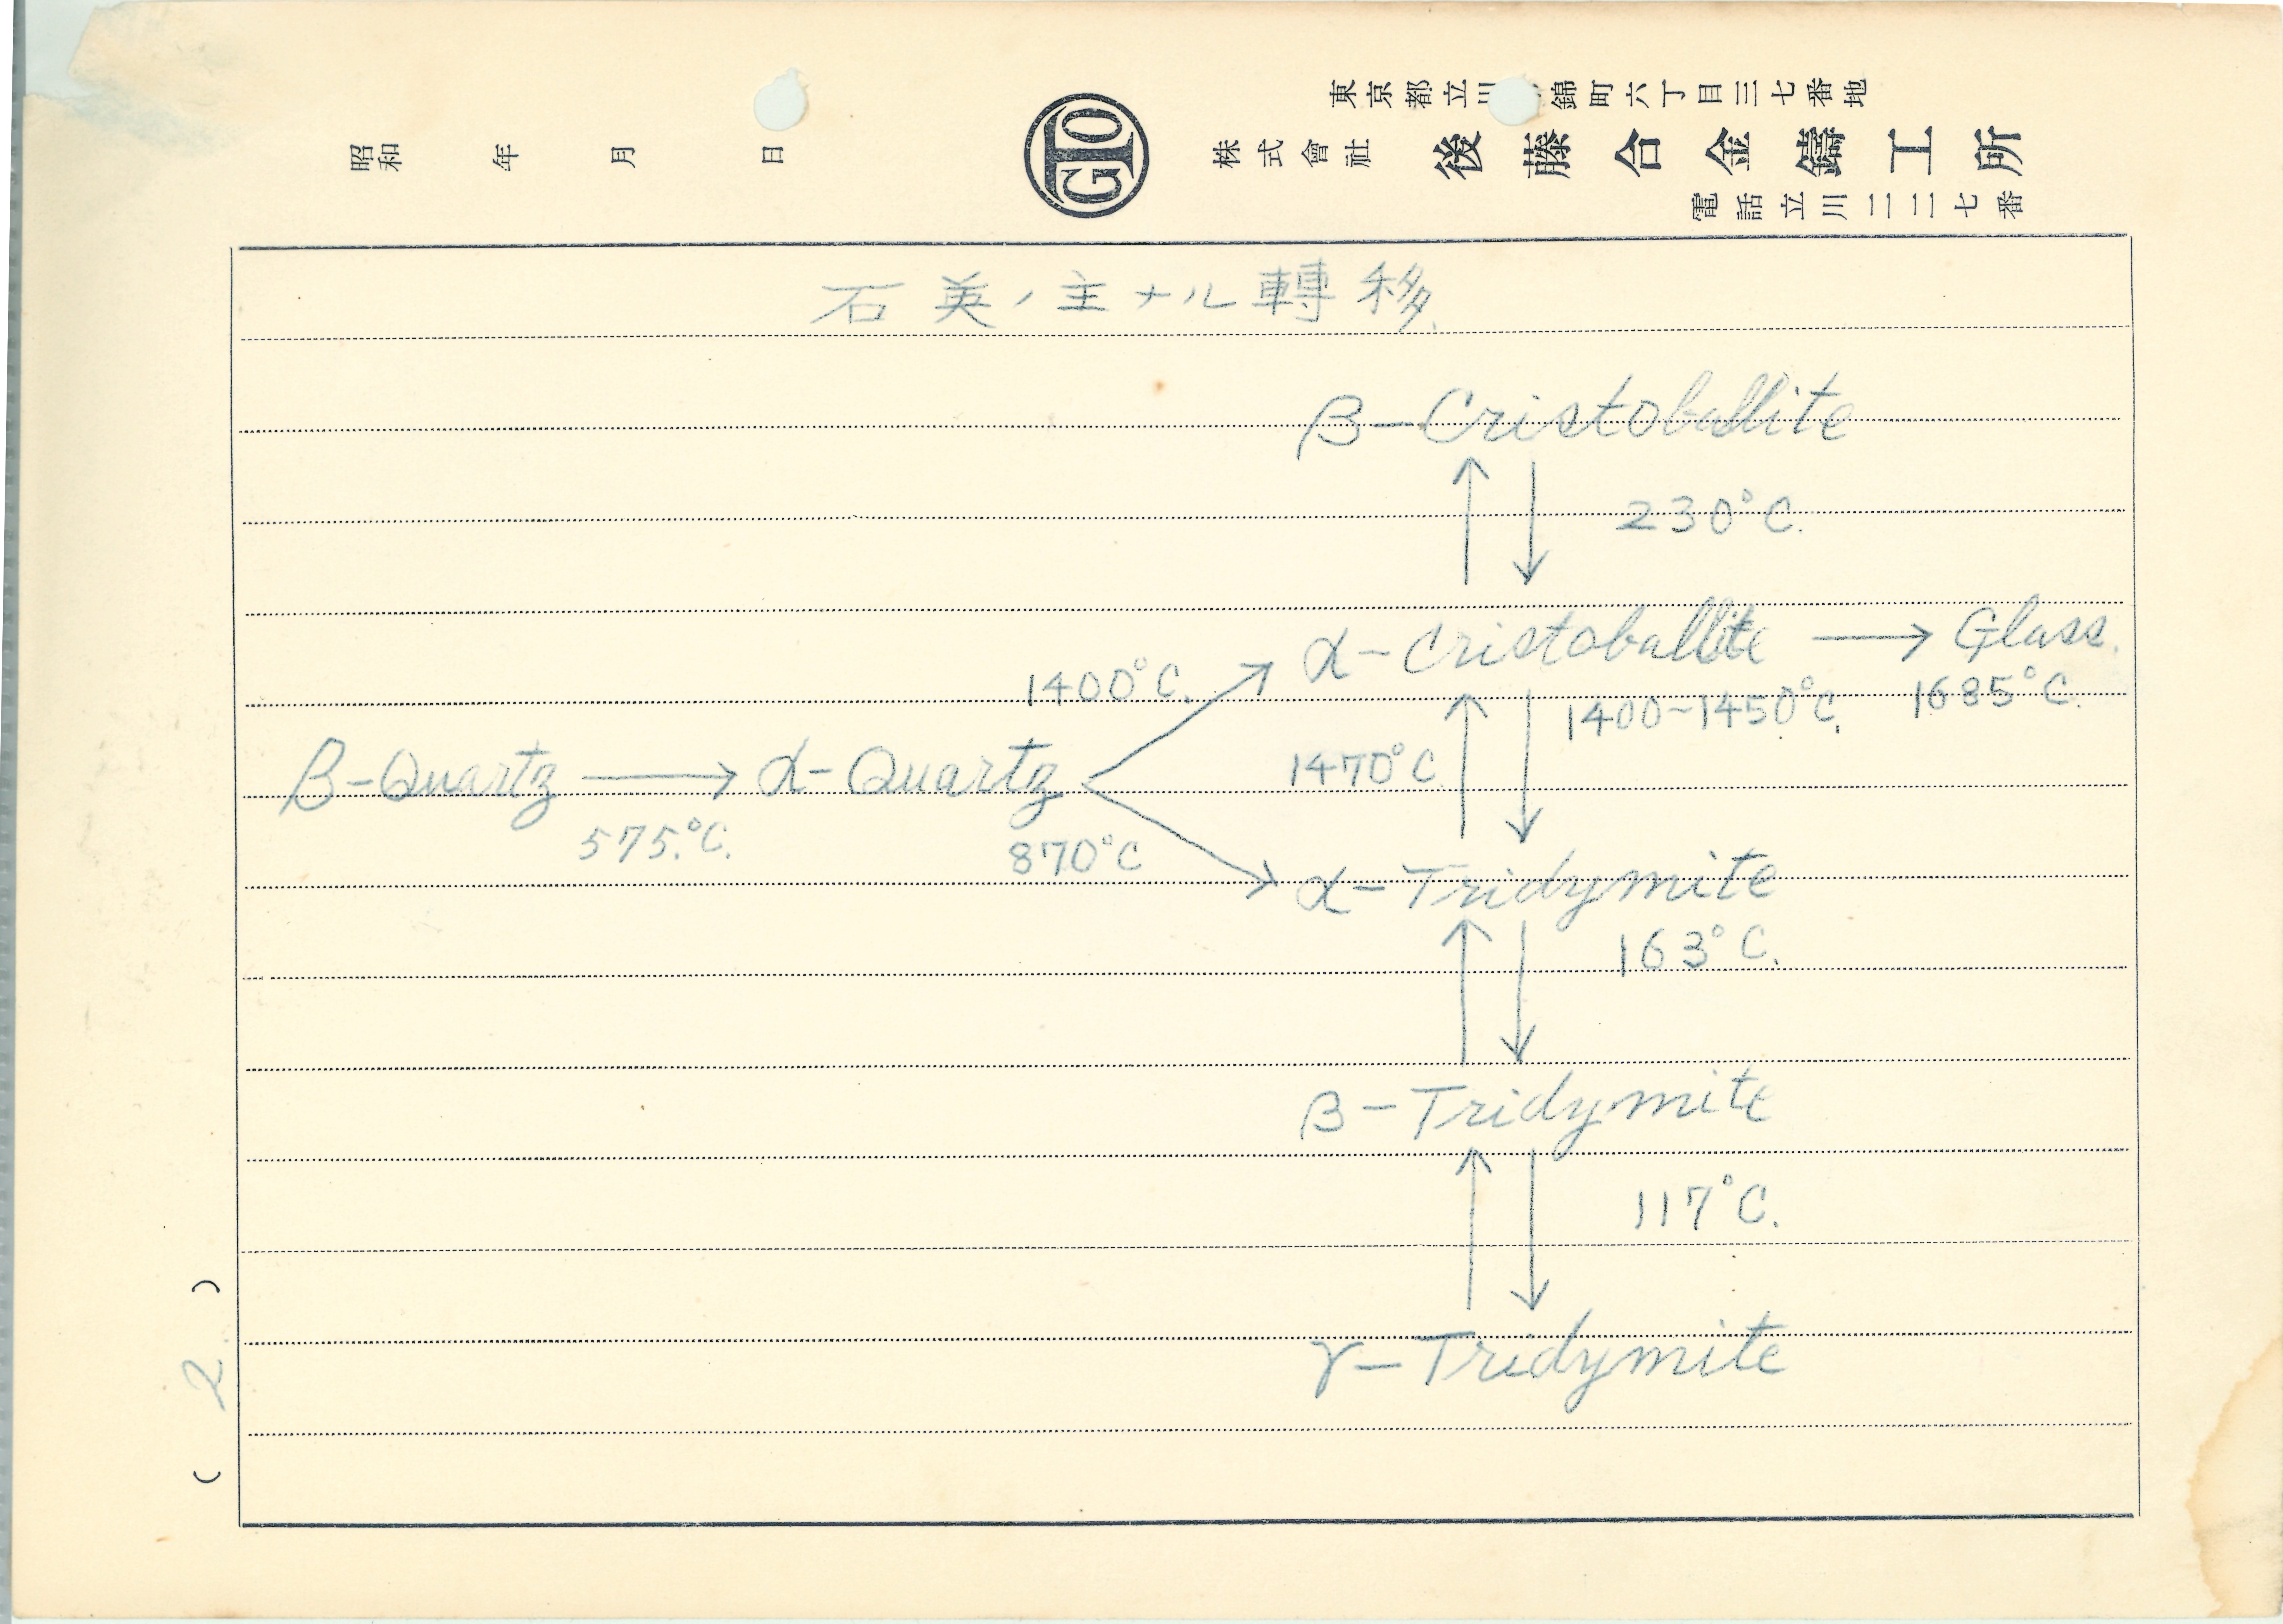 東京都立川 錦町六丁目三七番地
株式會社 後藤合金鑄工所
電話立川二二七番
GTO
昭和 年 月 日
石英ノ主ナル轉移
β-Cristoballite
230°C.
α-Cristoballite → Glass.
1400°C. 1400~1450°C. 1685°C.
1470°C
β-Quartz → α-Quartz
575.°C. 870°C
α-Tridymite
163°C.
β-Tridymite
117°C.
γ-Tridymite
( 2 )